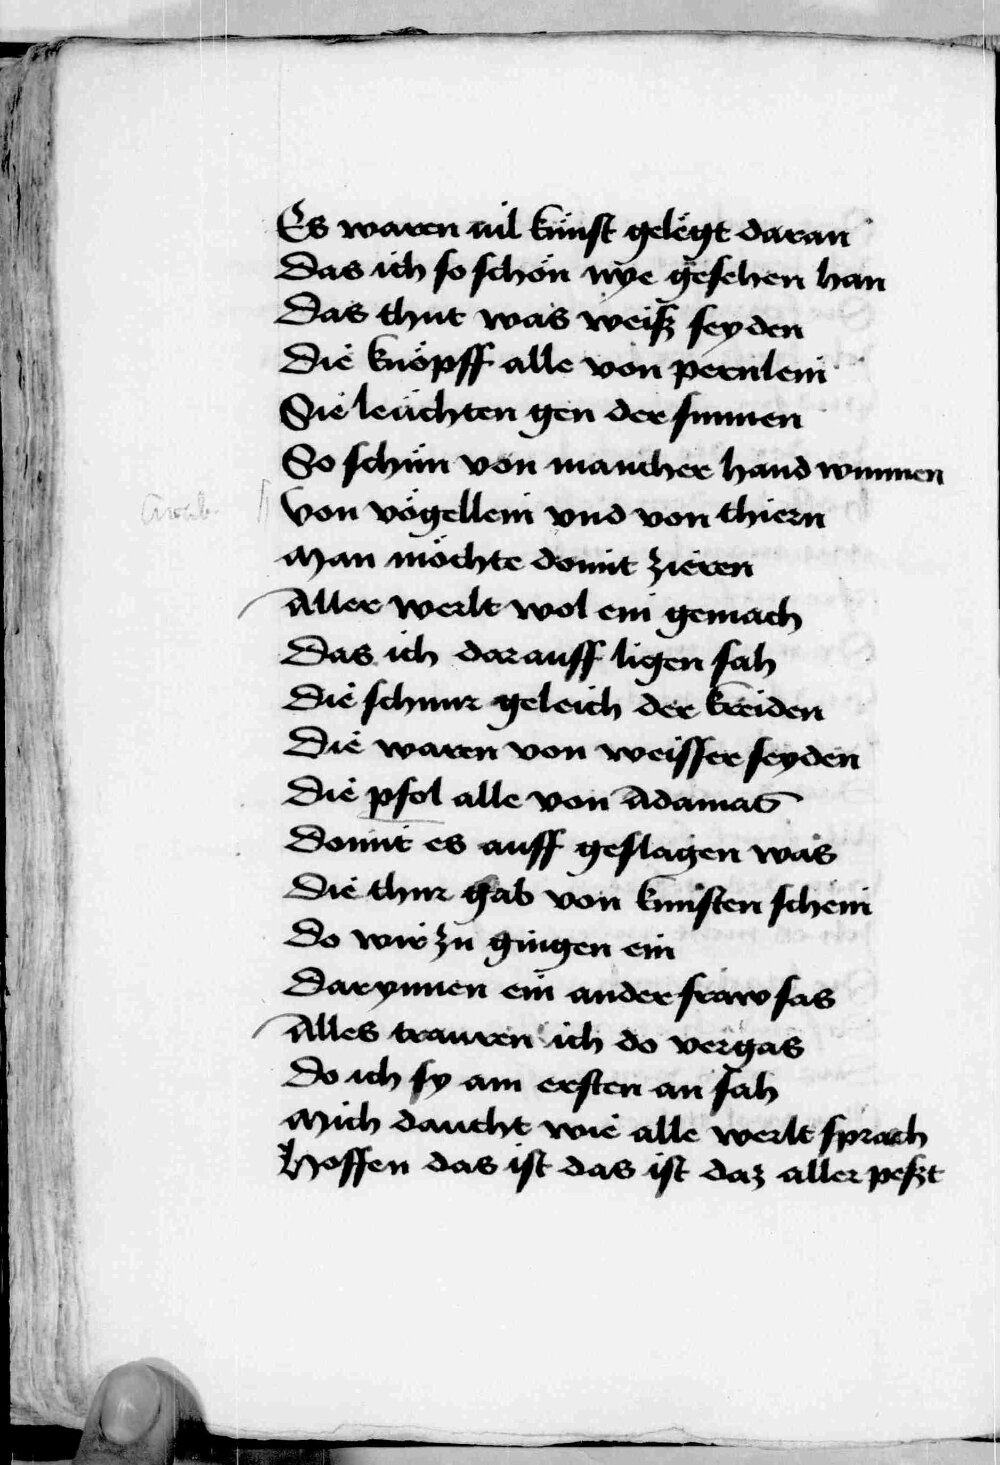 Es waren vil künst gelëgt daran
Das ich so schön nye gesehen han
Das thut was weisz seyden
Die knöpff alle von pernlein
Sie leüchten gen der sunnen
So schün von mancher hand wunnen
Von vögellein vnd von thiern
Man möchte domit zieren
Aller werlt wol ein gemach
Das ich darauff ligen sah
Die schnur geleich der kreiden
Die waren von weisser seyden
Die pfol alle von Adamas
Domit es auff geslagen was
Die thur gab von kunsten schein
Do wir zu gingen ein
Darynnen ein ander fraw sas
Alles trauren ich do vergas
Do ich sy am ersten an sah
Mich daucht wie alle werlt sprach
Hoffen das ist das ist daz aller peszt